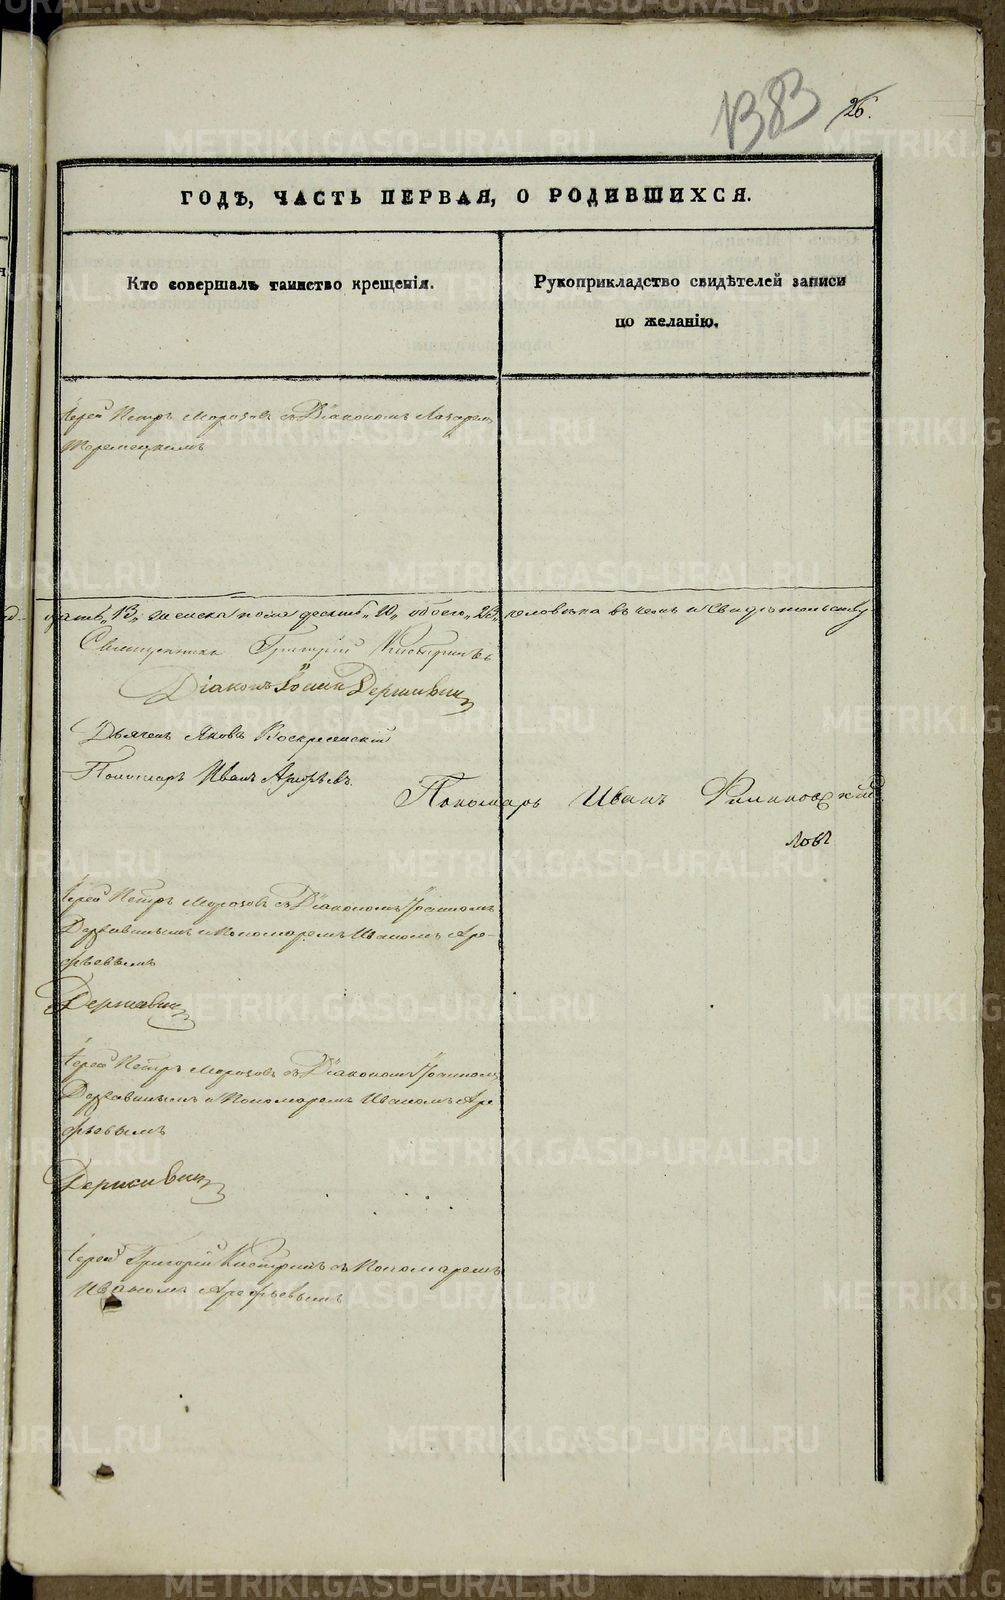 1383 26.
ГОДЪ, ЧАСТЬ ПЕРВАЯ, О РОДИВШИХСЯ.
Кто совершалъ таинство крещенія.
Рукоприкладство свидѣтелей записи
по желанію.
Іерей Петръ Морозовъ съ Діакономъ Лазаремъ
„13„ женска пола десять „10„ обоего „23„ человѣка въ чемъ и свидѣтельству
Священникъ Григорій
Діаконъ Іоаннъ Державин
Дьячекъ Яковъ Воскресенскій
Пономарь Иванъ Арефьевъ.
Пономарь Иванъ
ловъ
Іерей Петръ Морозовъ съ Діакономъ Іоанномъ
Державинымъ и Пономаремъ Иваномъ Аре-
фьевымъ
Державин
Іерей Петръ Морозовъ съ Діакономъ Іоанномъ
Державинымъ и Пономаремъ Иваномъ Аре
фьевымъ
Державин
Іерей Григорій съ Пономаремъ
Иваномъ Арефьевымъ
METRIKI.GASO-URAL.RU